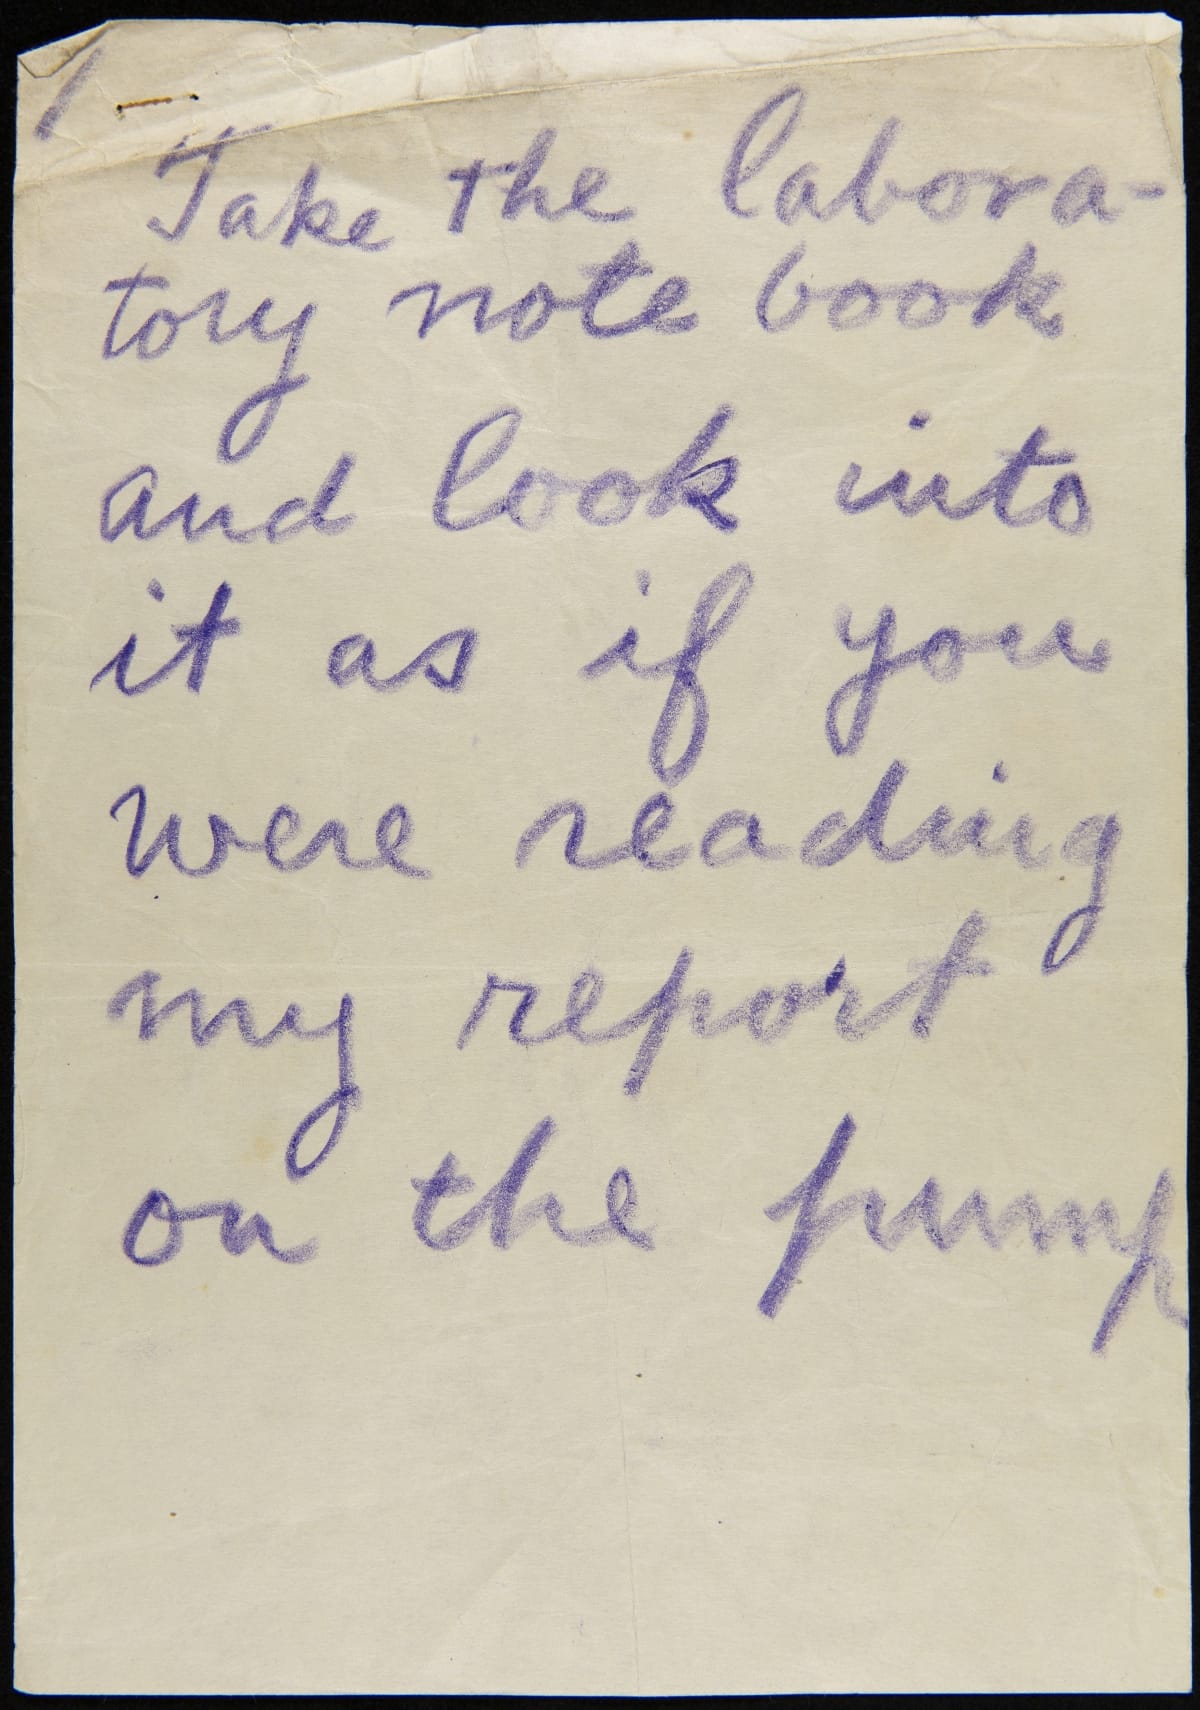 Take the labora-
tory note book
and look into
it as if you
were reading
my report
on the pump